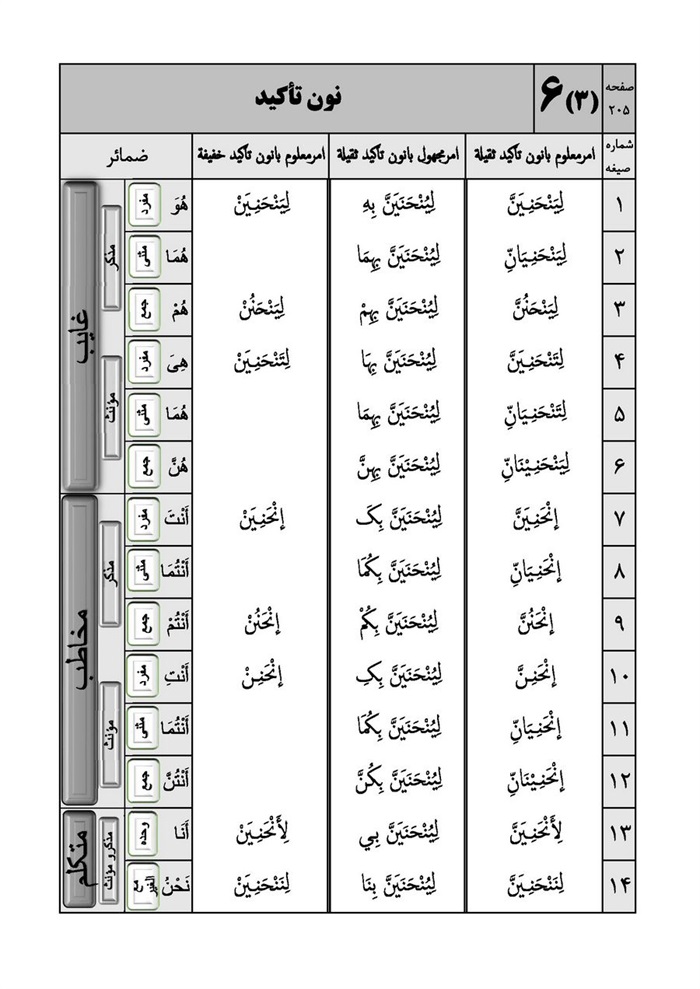 صفحه ۲۰۵ ۶(۳) نون تأکید
شماره صیغه امرمعلوم بانون تأکید ثقیلة امرمجهول بانون تأکید ثقیلة امرمعلوم بانون تأکید خفیفة ضمائر
۱ لِيَنْحَنِيَنَّ لِيُنْحَنَيَنَّ بِهِ لِيَنْحَنِيَنْ هُوَ مفرد مذکر غایب
۲ لِيَنْحَنِيَانِّ لِيُنْحَنَيَنَّ بِهِمَا هُمَا مثنی
۳ لِيَنْحَنُنَّ لِيُنْحَنَيَنَّ بِهِمْ لِيَنْحَنُنْ هُمْ جمع
۴ لِتَنْحَنِيَنَّ لِيُنْحَنَيَنَّ بِهَا لِتَنْحَنِيَنْ هِیَ مفرد مؤنث
۵ لِتَنْحَنِيَانِّ لِيُنْحَنَيَنَّ بِهِمَا هُمَا مثنی
۶ لِيَنْحَنِيْنَانِّ لِيُنْحَنَيَنَّ بِهِنَّ هُنَّ جمع
۷ إنْحَنِيَنَّ لِيُنْحَنَيَنَّ بِکَ إنْحَنِيَنْ أَنْتَ مفرد مذکر مخاطب
۸ إنْحَنِيَانِّ لِيُنْحَنَيَنَّ بِكُمَا أَنْتُمَا مثنی
۹ إنْحَنُنَّ لِيُنْحَنَيَنَّ بِكُمْ إنْحَنُنْ أَنْتُمْ جمع
۱۰ إنْحَنِنَّ لِيُنْحَنَيَنَّ بِکِ إنْحَنِنْ أَنْتِ مفرد مؤنث
۱۱ إنْحَنِيَانِّ لِيُنْحَنَيَنَّ بِكُمَا أَنْتُمَا مثنی
۱۲ إنْحَنِيْنَانِّ لِيُنْحَنَيَنَّ بِكُنَّ أَنْتُنَّ جمع
۱۳ لِأَنْحَنِيَنَّ لِيُنْحَنَيَنَّ بِي لِأَنْحَنِيَنْ أَنَا وحده مذکر و مؤنث متکلم
۱۴ لِنَنْحَنِيَنَّ لِيُنْحَنَيَنَّ بِنَا لِنَنْحَنِيَنْ نَحْنُ مع الغیر